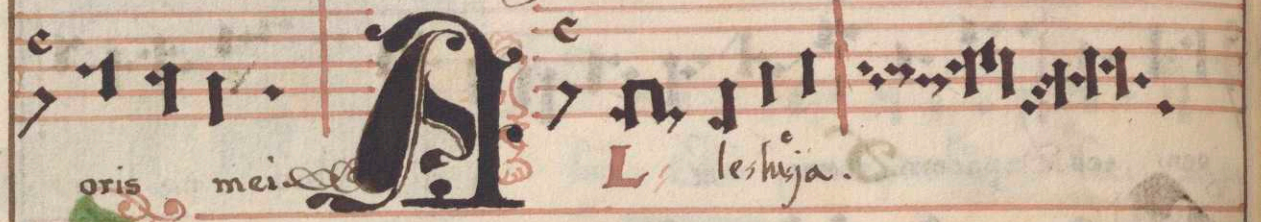 oris mei. A L leluja.